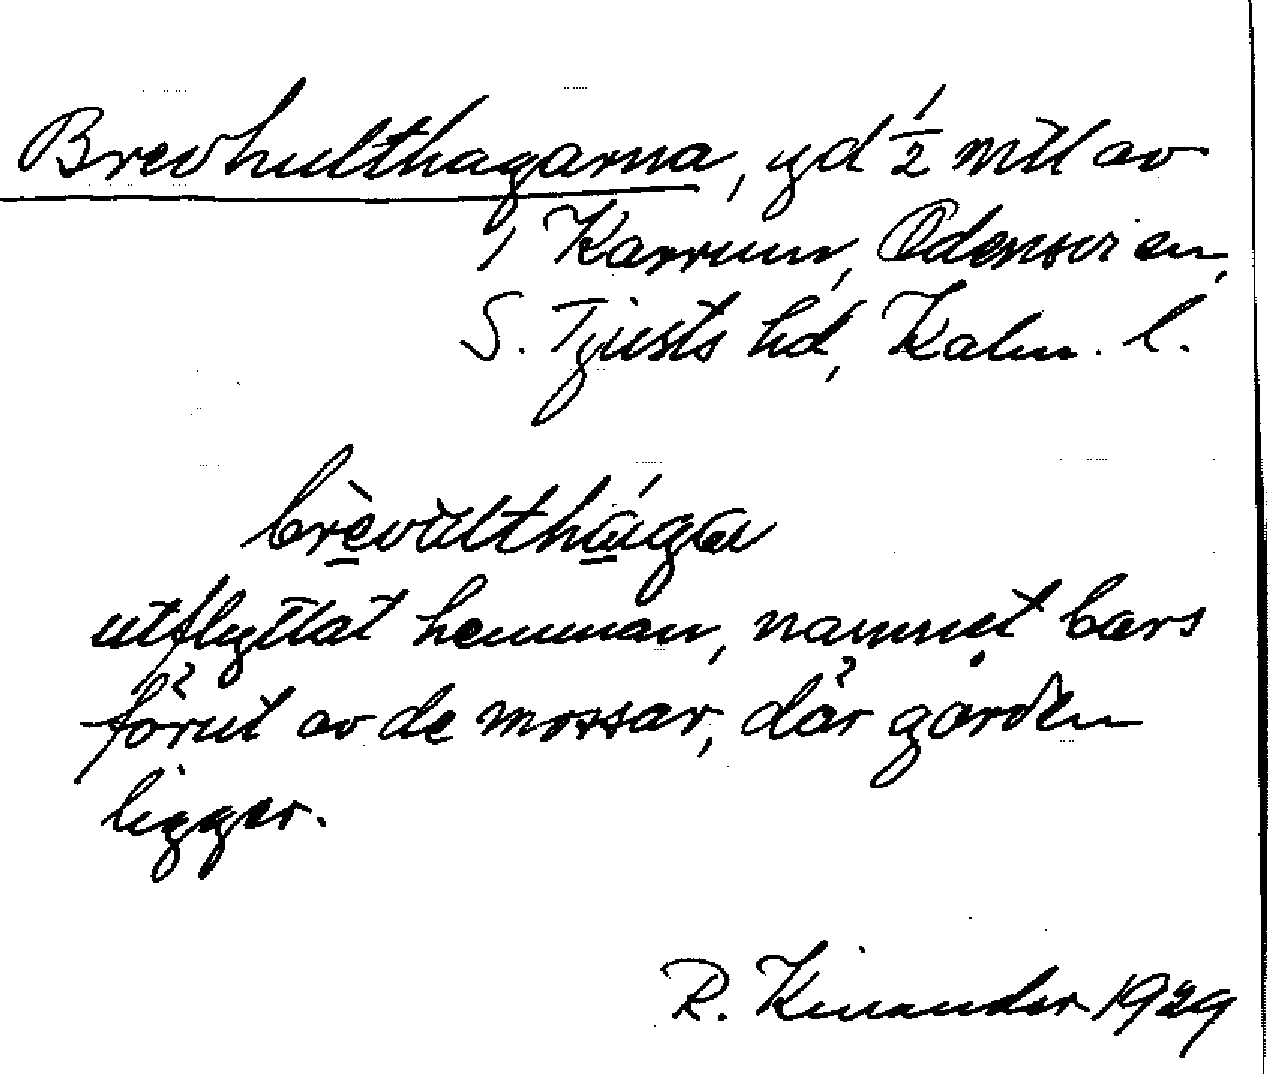 Brevhulthagarna, gd 1/2 mtl av
1 Karrum, Odensvi sn,
S. Tjusts hd, Kalm. l.
brèvúlthága
utflyttat hemman, namnet bars
förut av de mossar, där gården
ligger.
R. Kinander 1929